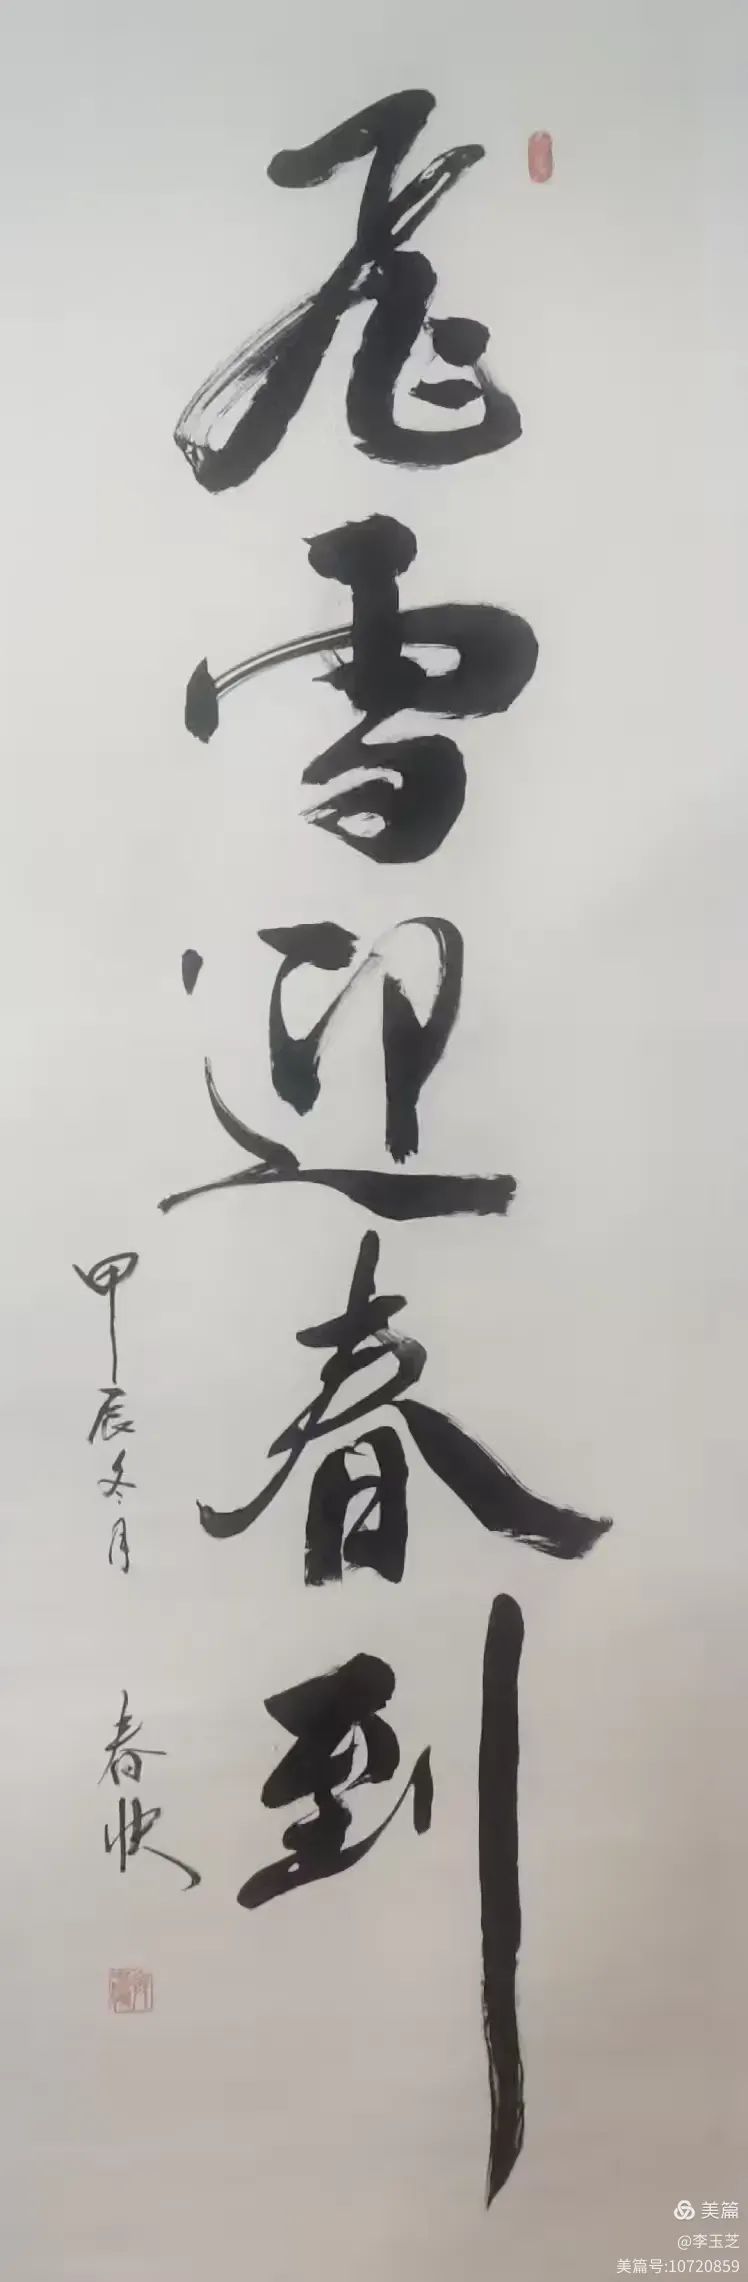 飛雪迎春到
甲辰冬月
春快
美篇
@李玉芝
美篇号:10720859